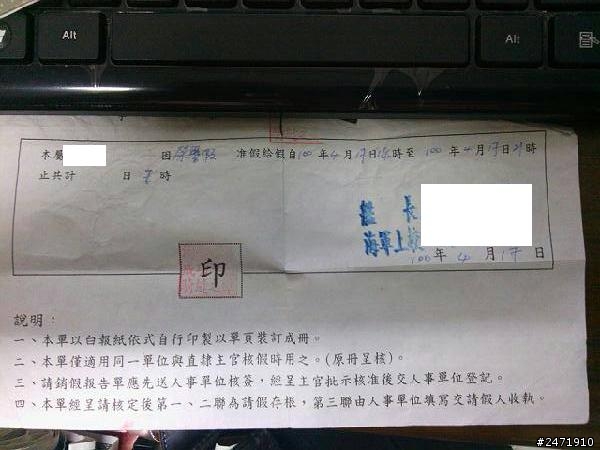 Alt
Alt
本屬 因榮譽假 准假給假自100年4月17日 時至100年4月17日21時
止共計 日 時
艦長
海軍上校
100年4月17日
印
說明：
一、本單以白報紙依式自行印製以單頁裝訂成冊。
二、本單僅適用同一單位與直隸主官核假時用之。(原冊呈核)。
三、請銷假報告單應先送人事單位核簽，經呈主官批示核准後交人事單位登記。
四、本單經呈請核定後第一、二聯為請假存根，第三聯由人事單位填寫交請假人收執。
#2471910